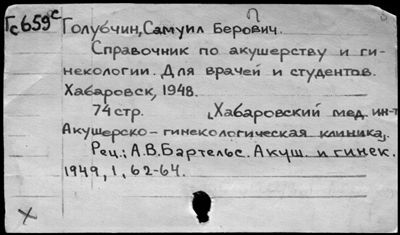 Гс659с Голубчин, Самуил Берович.
Справочник по акушерству и ги-
некологии. Для врачей и студентов.
Хабаровск, 1948.
74 стр. (Хабаровский мед. ин-т
Акушерско-гинекологическая клиника).
Рец.: А.В. Бартельс. Акуш. и гинек.
1949, 1, 62-64.